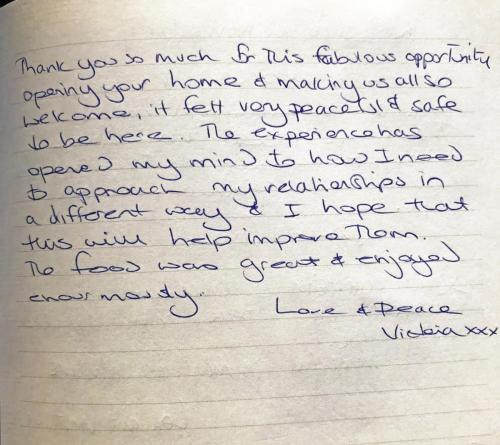 Thank you so much for this fabulous opportunity
opening your home & making us all so
welcome, it felt very peaceful & safe
to be here. The experience has
opened my mind to how I need
to approach my relationships in
a different way & I hope that
this will help improve them.
The food was great & enjoyed
enourmously.
Love & Peace
Victoria xxx